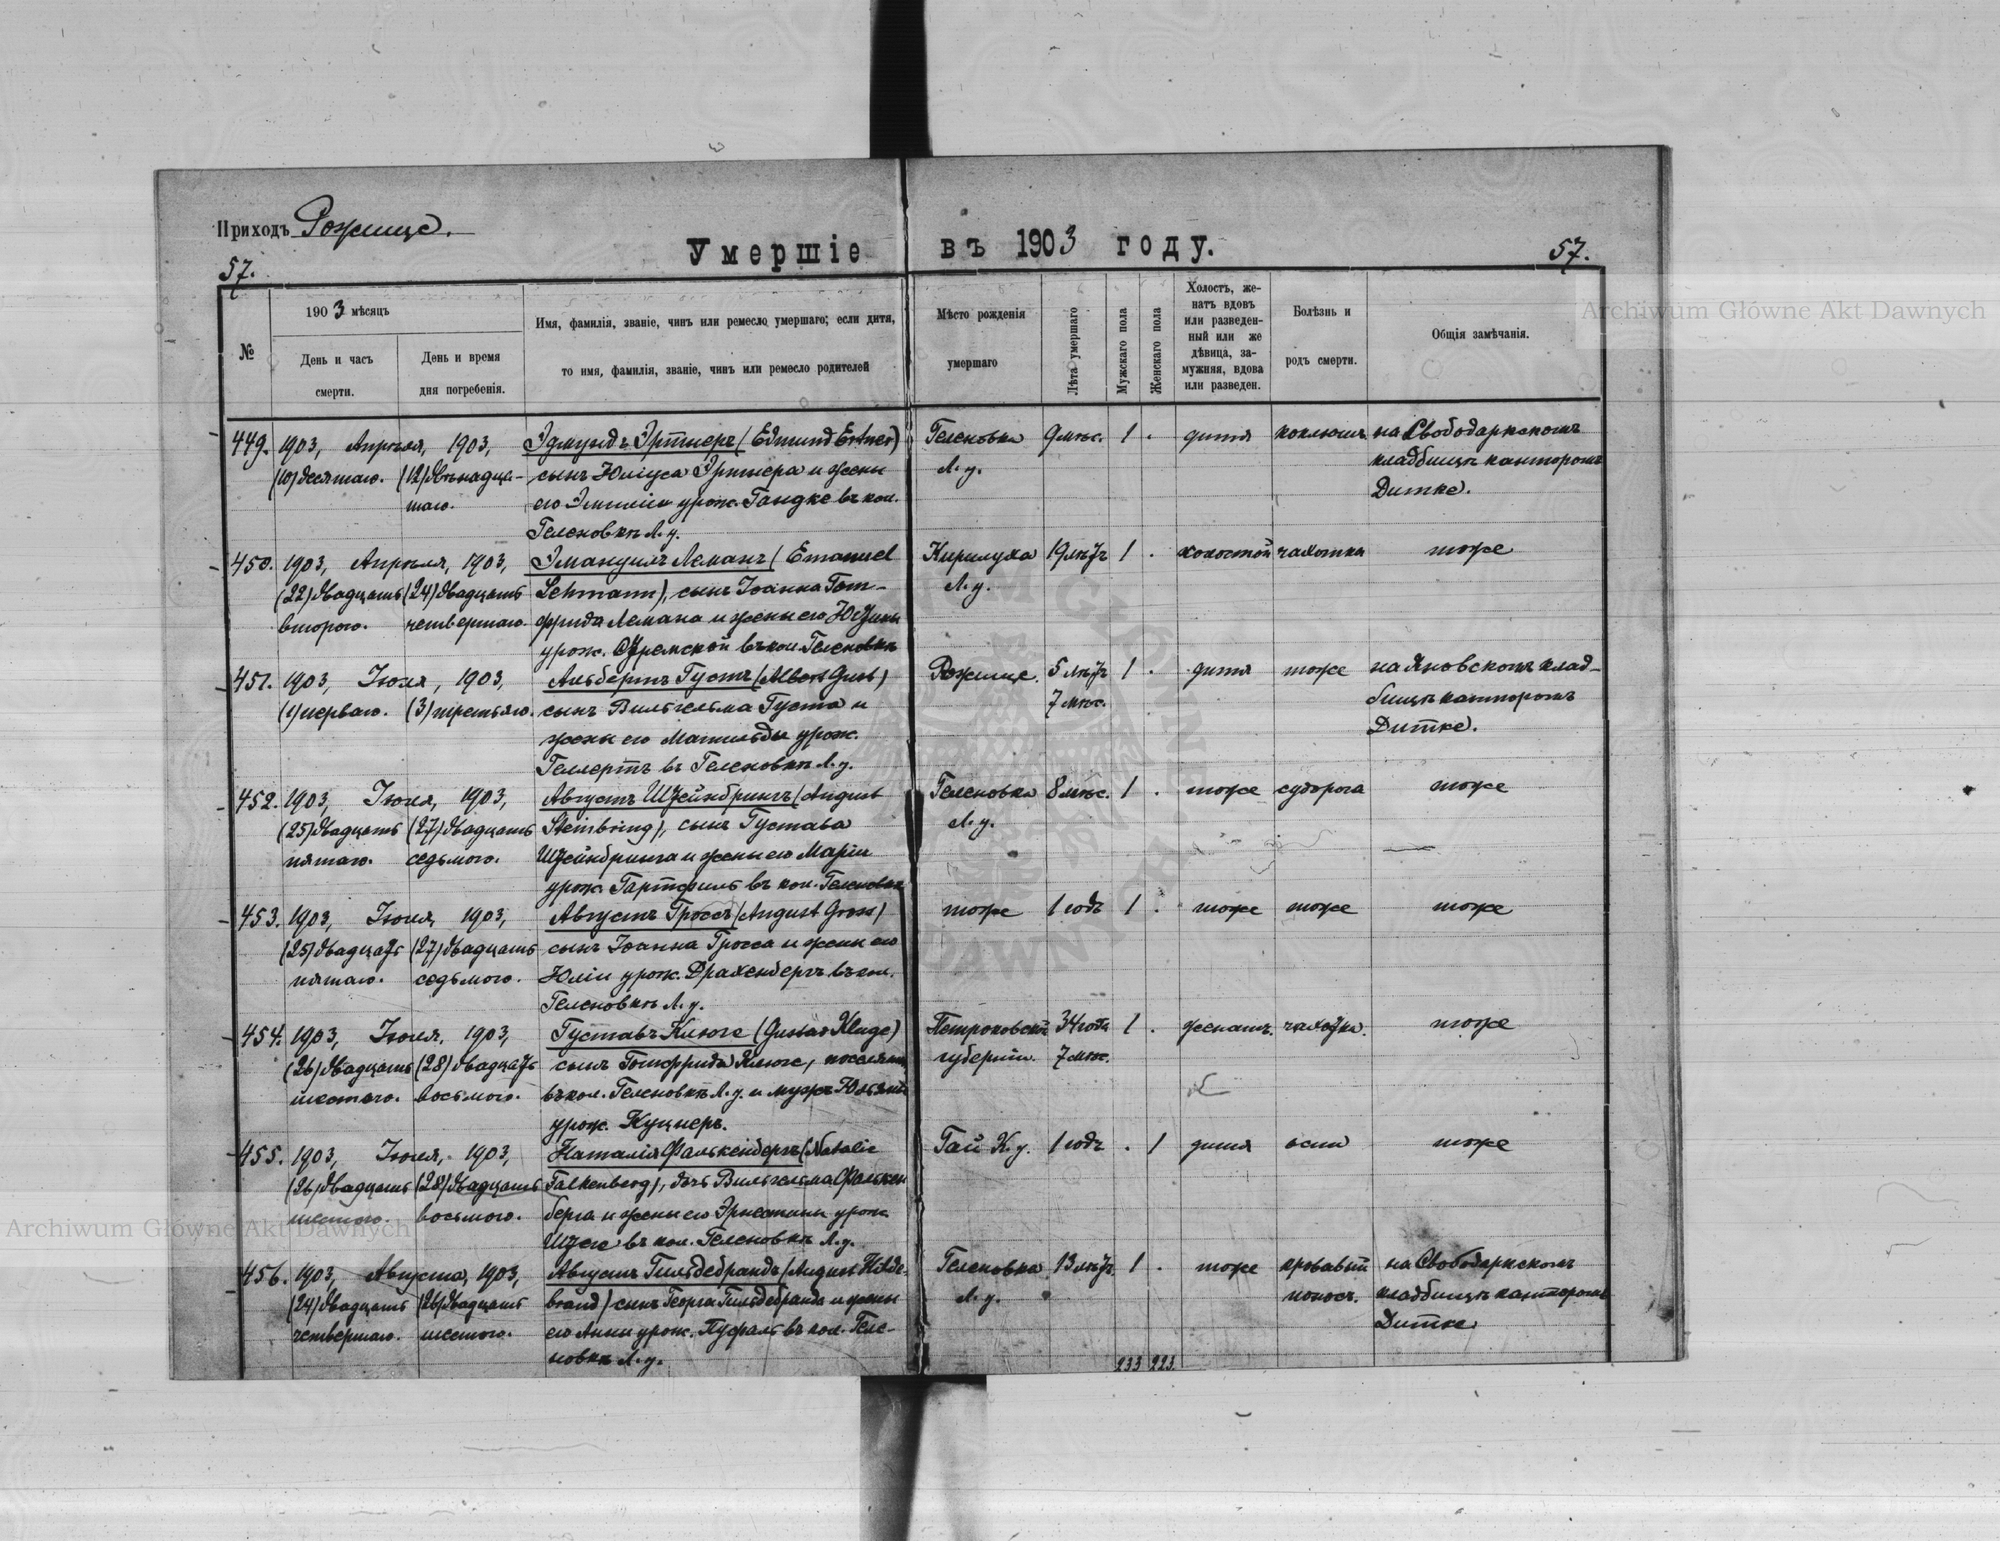 Приходъ Рожище.
Умершіе въ 1903 году.
57.
57.
№
1903 мѣсяцъ
День и часъ
смерти.
День и время
дня погребенія.
Имя, фамилія, званіе, чинъ или ремесло умершаго; если дитя,
то имя, фамилія, званіе, чинъ или ремесло родителей
Мѣсто рожденія
умершаго
Лѣта умершаго
Мужскаго пола
Женскаго пола
Холостъ, же-
натъ вдовъ
или разведен-
ный или же
дѣвица, за-
мужняя, вдова
или разведен.
Болѣзнь и
родъ смерти.
Общія замѣчанія.
449. 1903, Апрѣля, 1903, Эдмундъ Эртнеръ (Edmund Ertner) Геленовка 9 мѣс. 1 . дитя коклюшъ на Свободаркскомъ
(10) десятаго. (12) двѣнадца- сынъ Юліуса Эртнера и жены Л. у. кладбищѣ канторомъ
таго. его Эмиліи урож. Гандке въ кол. Дитке.
Геленовкѣ Л. у.
450. 1903, Апрѣля, 1903, Эмануилъ Леманъ (Emanuel Кирилуха 19 лѣтъ 1 . холостой чахотка тоже
(22) двадцать (24) двадцать Lehmann), сынъ Іоанна Гот- Л. у.
второго. четвертаго. фрида Лемана и жены его
урож. въ кол. Геленовкѣ
451. 1903, Іюля, 1903, Альбертъ Густъ (Albert Gust) Рожище. 5 лѣтъ 1 . дитя тоже на Яновскомъ клад-
(1) перваго. (3) третьяго. сынъ Вильгельма Густа и 7 мѣс. бищѣ канторомъ
жены его Матильды урож. Дитке.
Геллертъ въ Геленовкѣ Л. у.
452. 1903, Іюля, 1903, Августъ Штейнбрингъ (August Геленовка 8 мѣс. 1 . тоже судорога тоже
(25) двадцать (27) двадцать Steinbring), сынъ Густава Л. у.
пятаго. седьмого. Штейнбринга и жены его Маріи
урож. въ кол. Геленовкѣ
453. 1903, Іюля, 1903, Августъ Гроссъ (August Gross) тоже 1 годъ 1 . тоже тоже тоже
(25) двадцать (27) двадцать сынъ Іоанна Гросса и жены его
пятаго. седьмого. Юліи урож. Драхенбергъ въ кол.
Геленовкѣ Л. у.
454. 1903, Іюля, 1903, Густавъ Клюге (Gustav Kluge) Петроковской 34 года 1 . женатъ. чахотка. тоже
(26) двадцать (28) двадцать сынъ Готфрида Клюге, губерніи. 7 мѣс.
шестого. восьмого. въ кол. Геленовкѣ Л. у. и мужъ
урож. Куцнеръ.
455. 1903, Іюля, 1903, Наталія Фалькенбергъ (Natalie Гай К. у. 1 годъ . 1 дитя оспа тоже
(26) двадцать (28) двадцать Falkenberg), дочь Вильгельма Фалькен
шестого. восьмого. берга и жены его Эрнестины урож.
въ кол. Геленовкѣ Л. у.
456. 1903, Августа, 1903, Августъ Гильдебрандъ (August Hilde- Геленовка 13 лѣтъ. 1 . тоже кровавый на Свободаркскомъ
(24) двадцать (26) двадцать brand) сынъ Георга Гильдебранда и жены Л. у. поносъ. кладбищѣ канторомъ
четвертаго. шестого. его Анны урож. Пуфаль въ кол. Геле- Дитке.
новкѣ Л. у.
233 223.
Archiwum Główne Akt Dawnych
Archiwum Główne Akt Dawnych